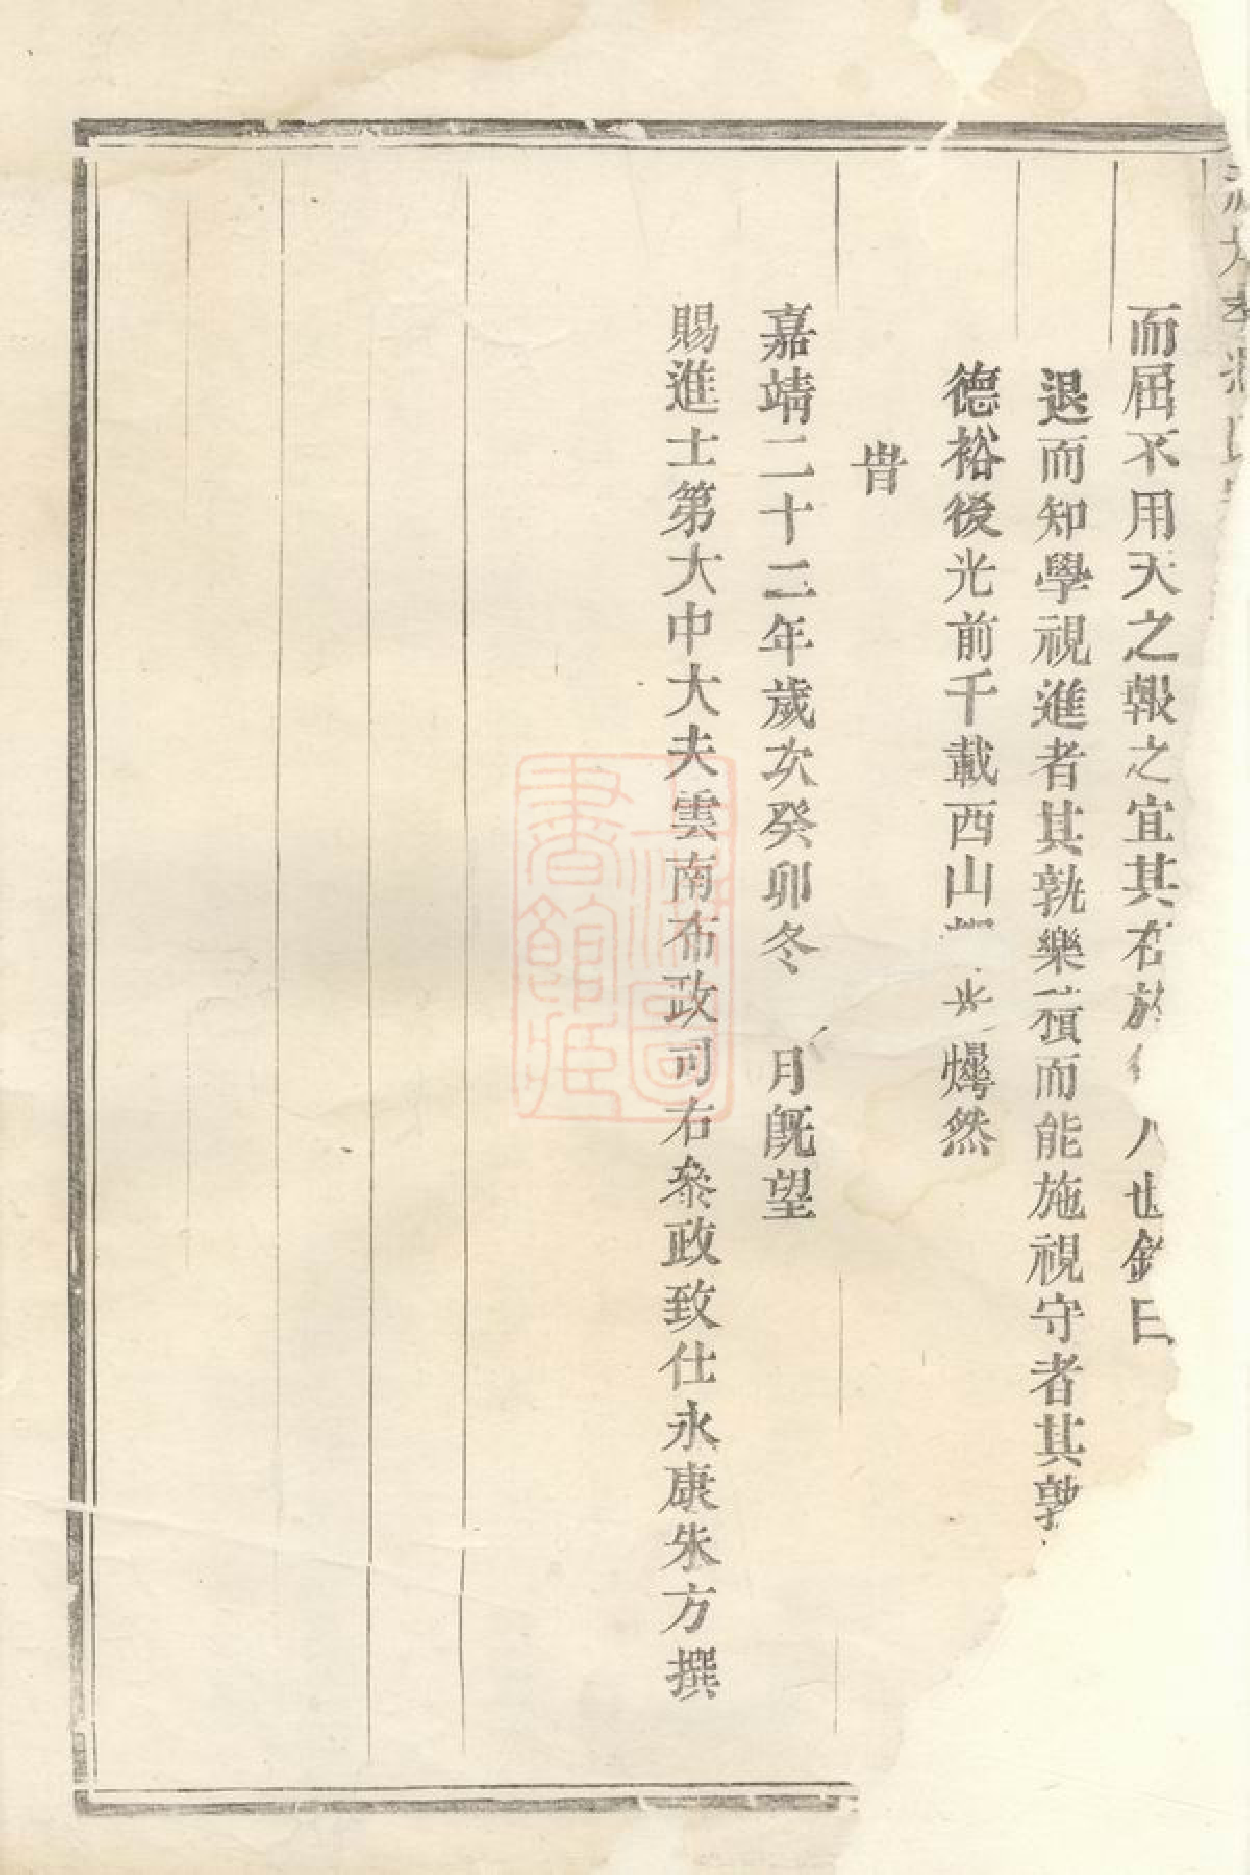 而屈不用天之報之宜其右於 人也銘曰
退而知學視進者其孰樂積而能施視守者其孰
德裕後光前千載西山 燁然
旹
嘉靖二十二年歲次癸卯冬 月旣望
賜進士第大中大夫雲南布政司右叅政致仕永康朱方撰
上海圖書館藏